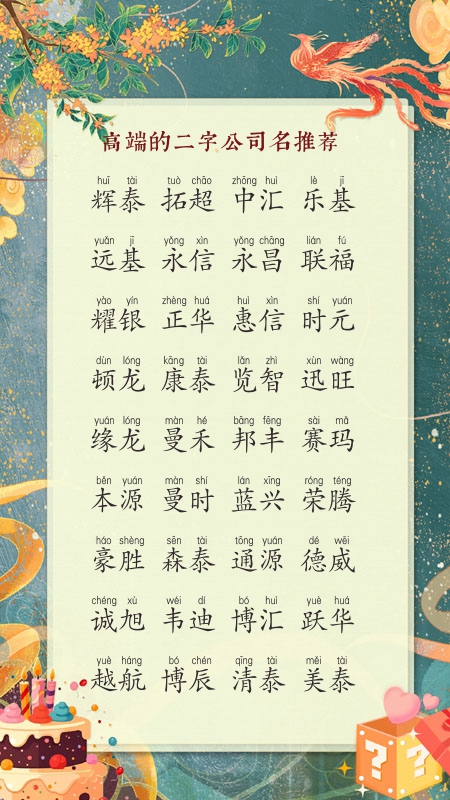 高端的二字公司名推荐
huī tài tuò chāo zhōng huì lè jī
辉泰 拓超 中汇 乐基
yuǎn jī yǒng xìn yǒng chāng lián fú
远基 永信 永昌 联福
yào yín zhèng huá huì xìn shí yuán
耀银 正华 惠信 时元
dùn lóng kāng tài lǎn zhì xùn wàng
顿龙 康泰 览智 迅旺
yuán lóng màn hé bāng fēng sài mǎ
缘龙 曼禾 邦丰 赛玛
běn yuán màn shí lán xīng róng téng
本源 曼时 蓝兴 荣腾
háo shèng sēn tài tōng yuán dé wēi
豪胜 森泰 通源 德威
chéng xù wéi dí bó huì yuè huá
诚旭 韦迪 博汇 跃华
yuè háng bó chén qīng tài měi tài
越航 博辰 清泰 美泰
? ?